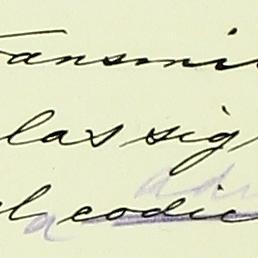 ransmi
las sig
el codic